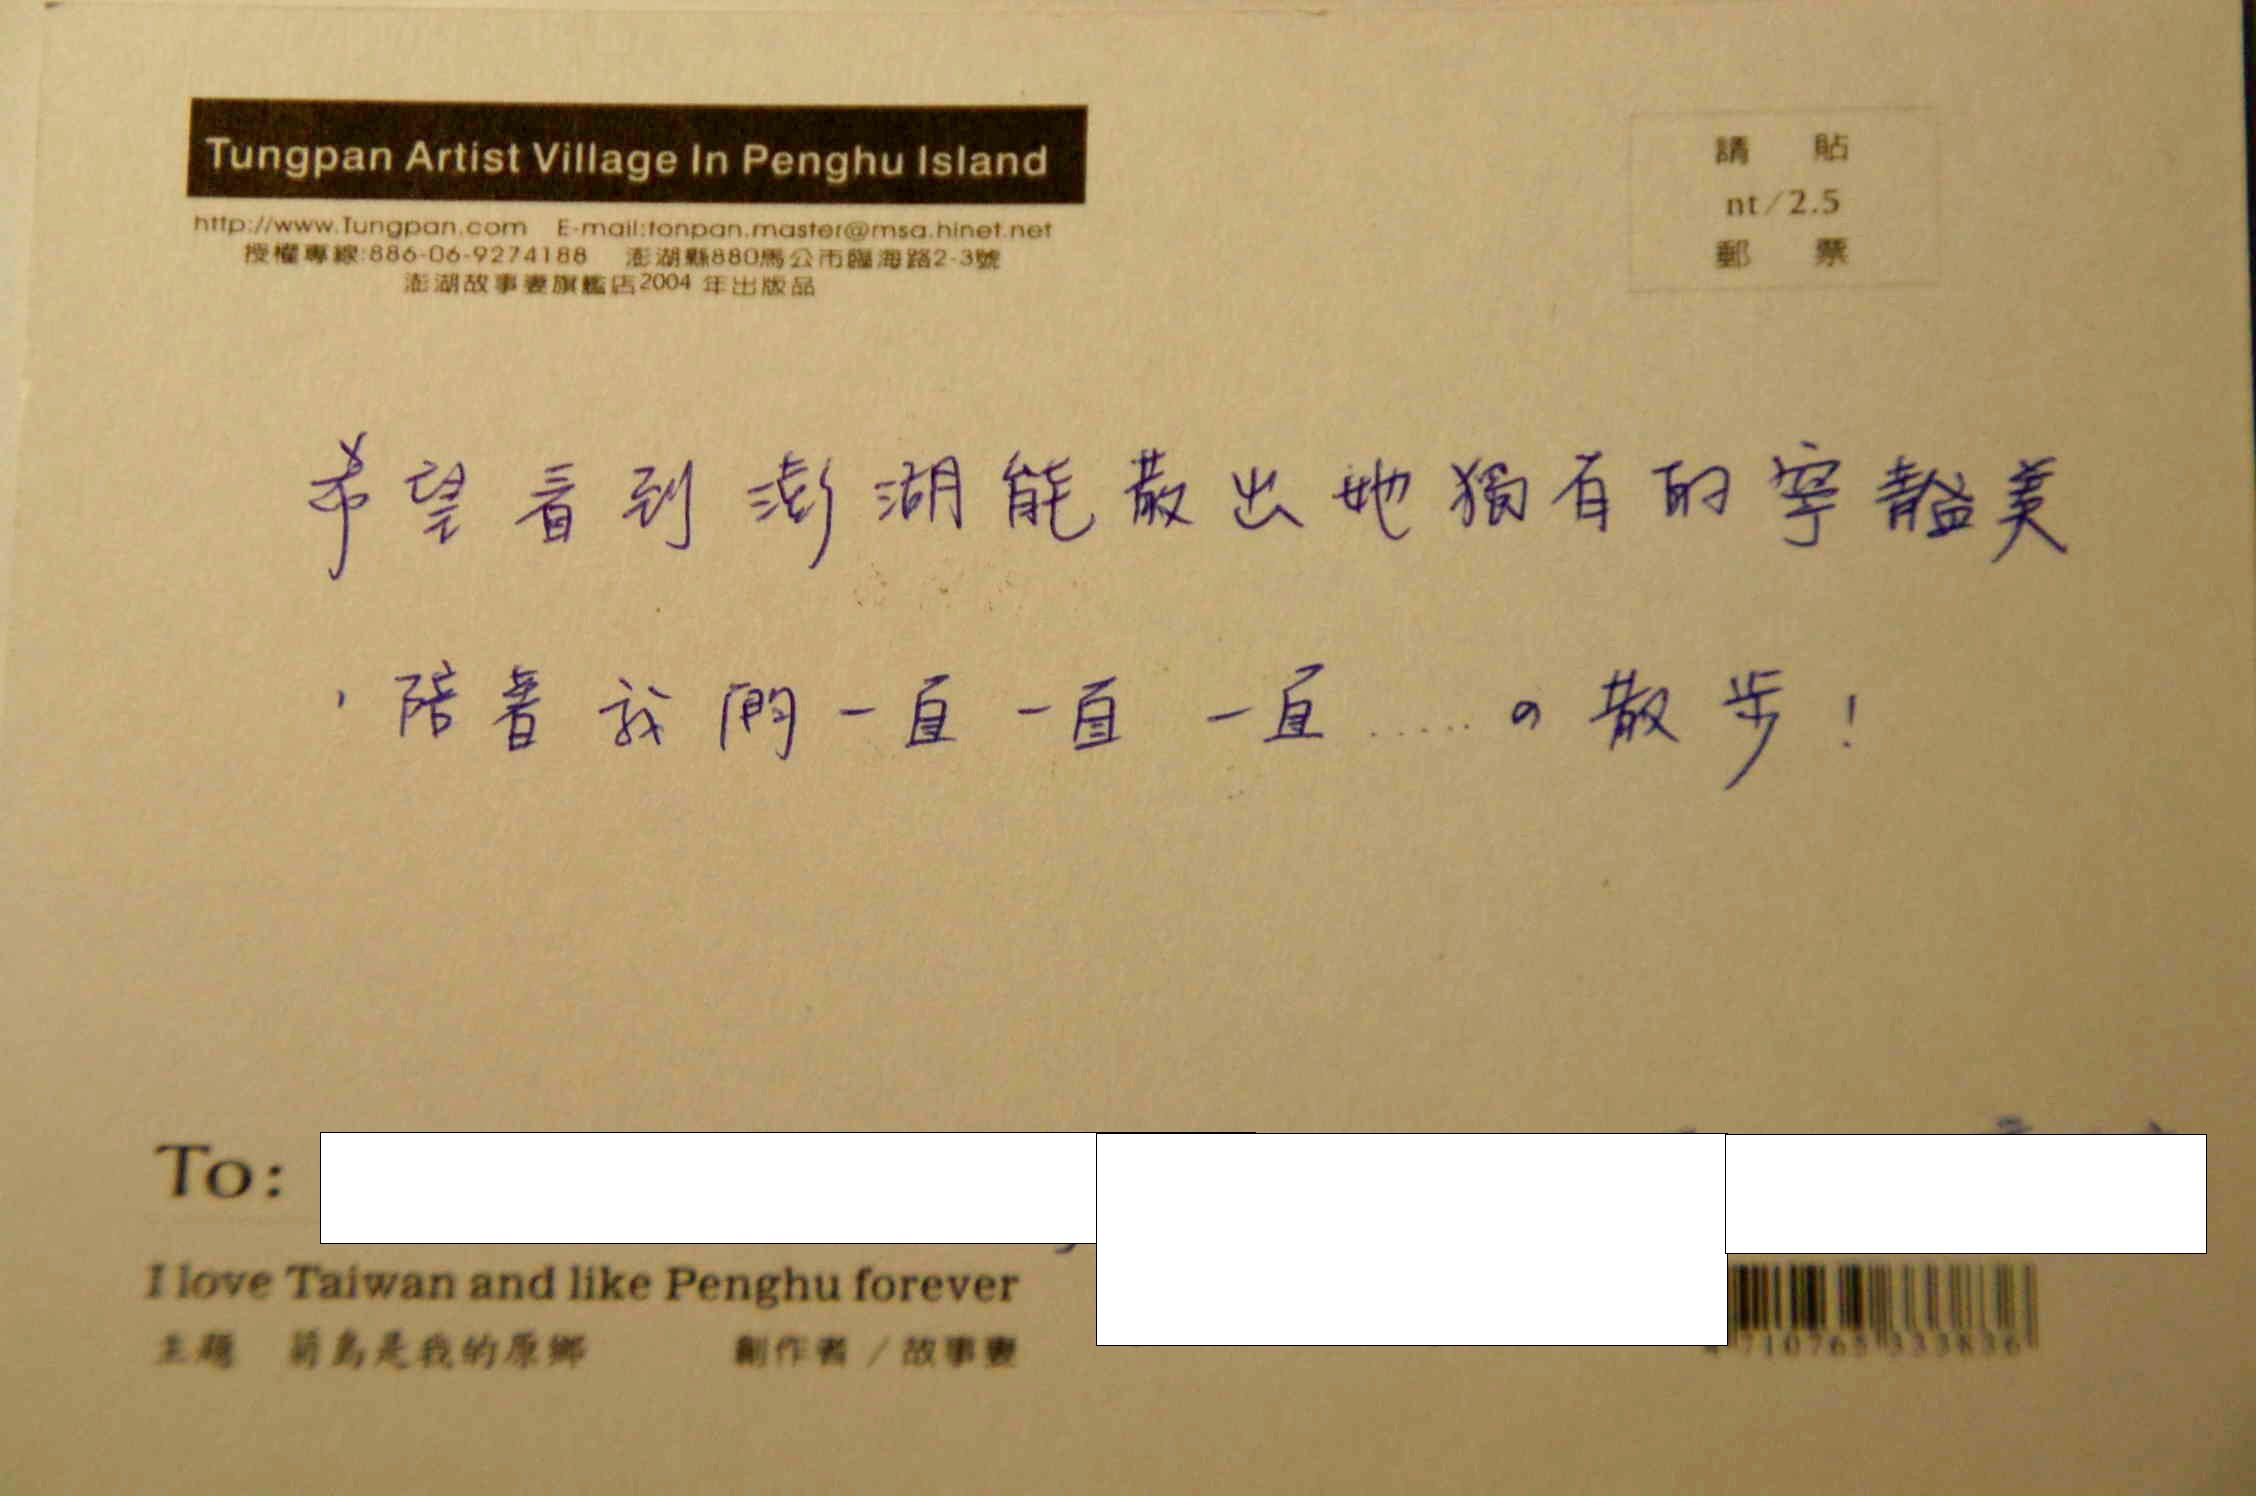 Tungpan Artist Village In Penghu Island
http://www.Tungpan.com E-mail:tonpan.master@msa.hinet.net
授權專線:886-06-9274188 澎湖縣880馬公市臨海路2-3號
澎湖故事妻旗艦店2004 年出版品
請 貼
nt/2.5
郵 票
希望看到澎湖能散出她獨有的寧靜美
,陪著我們一直一直一直.....の散步!
To:
I love Taiwan and like Penghu forever
主題 菊島是我的原鄉 創作者/故事妻
4710765333836